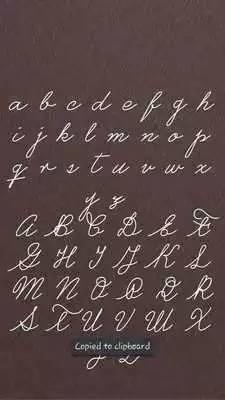 a b c d e f g h
i j k l m n o p
q r s t u v w x
y z
A B C D E F
G H I J K L
M N O P Q R
S T U V W X
Copied to clipboard
Y Z